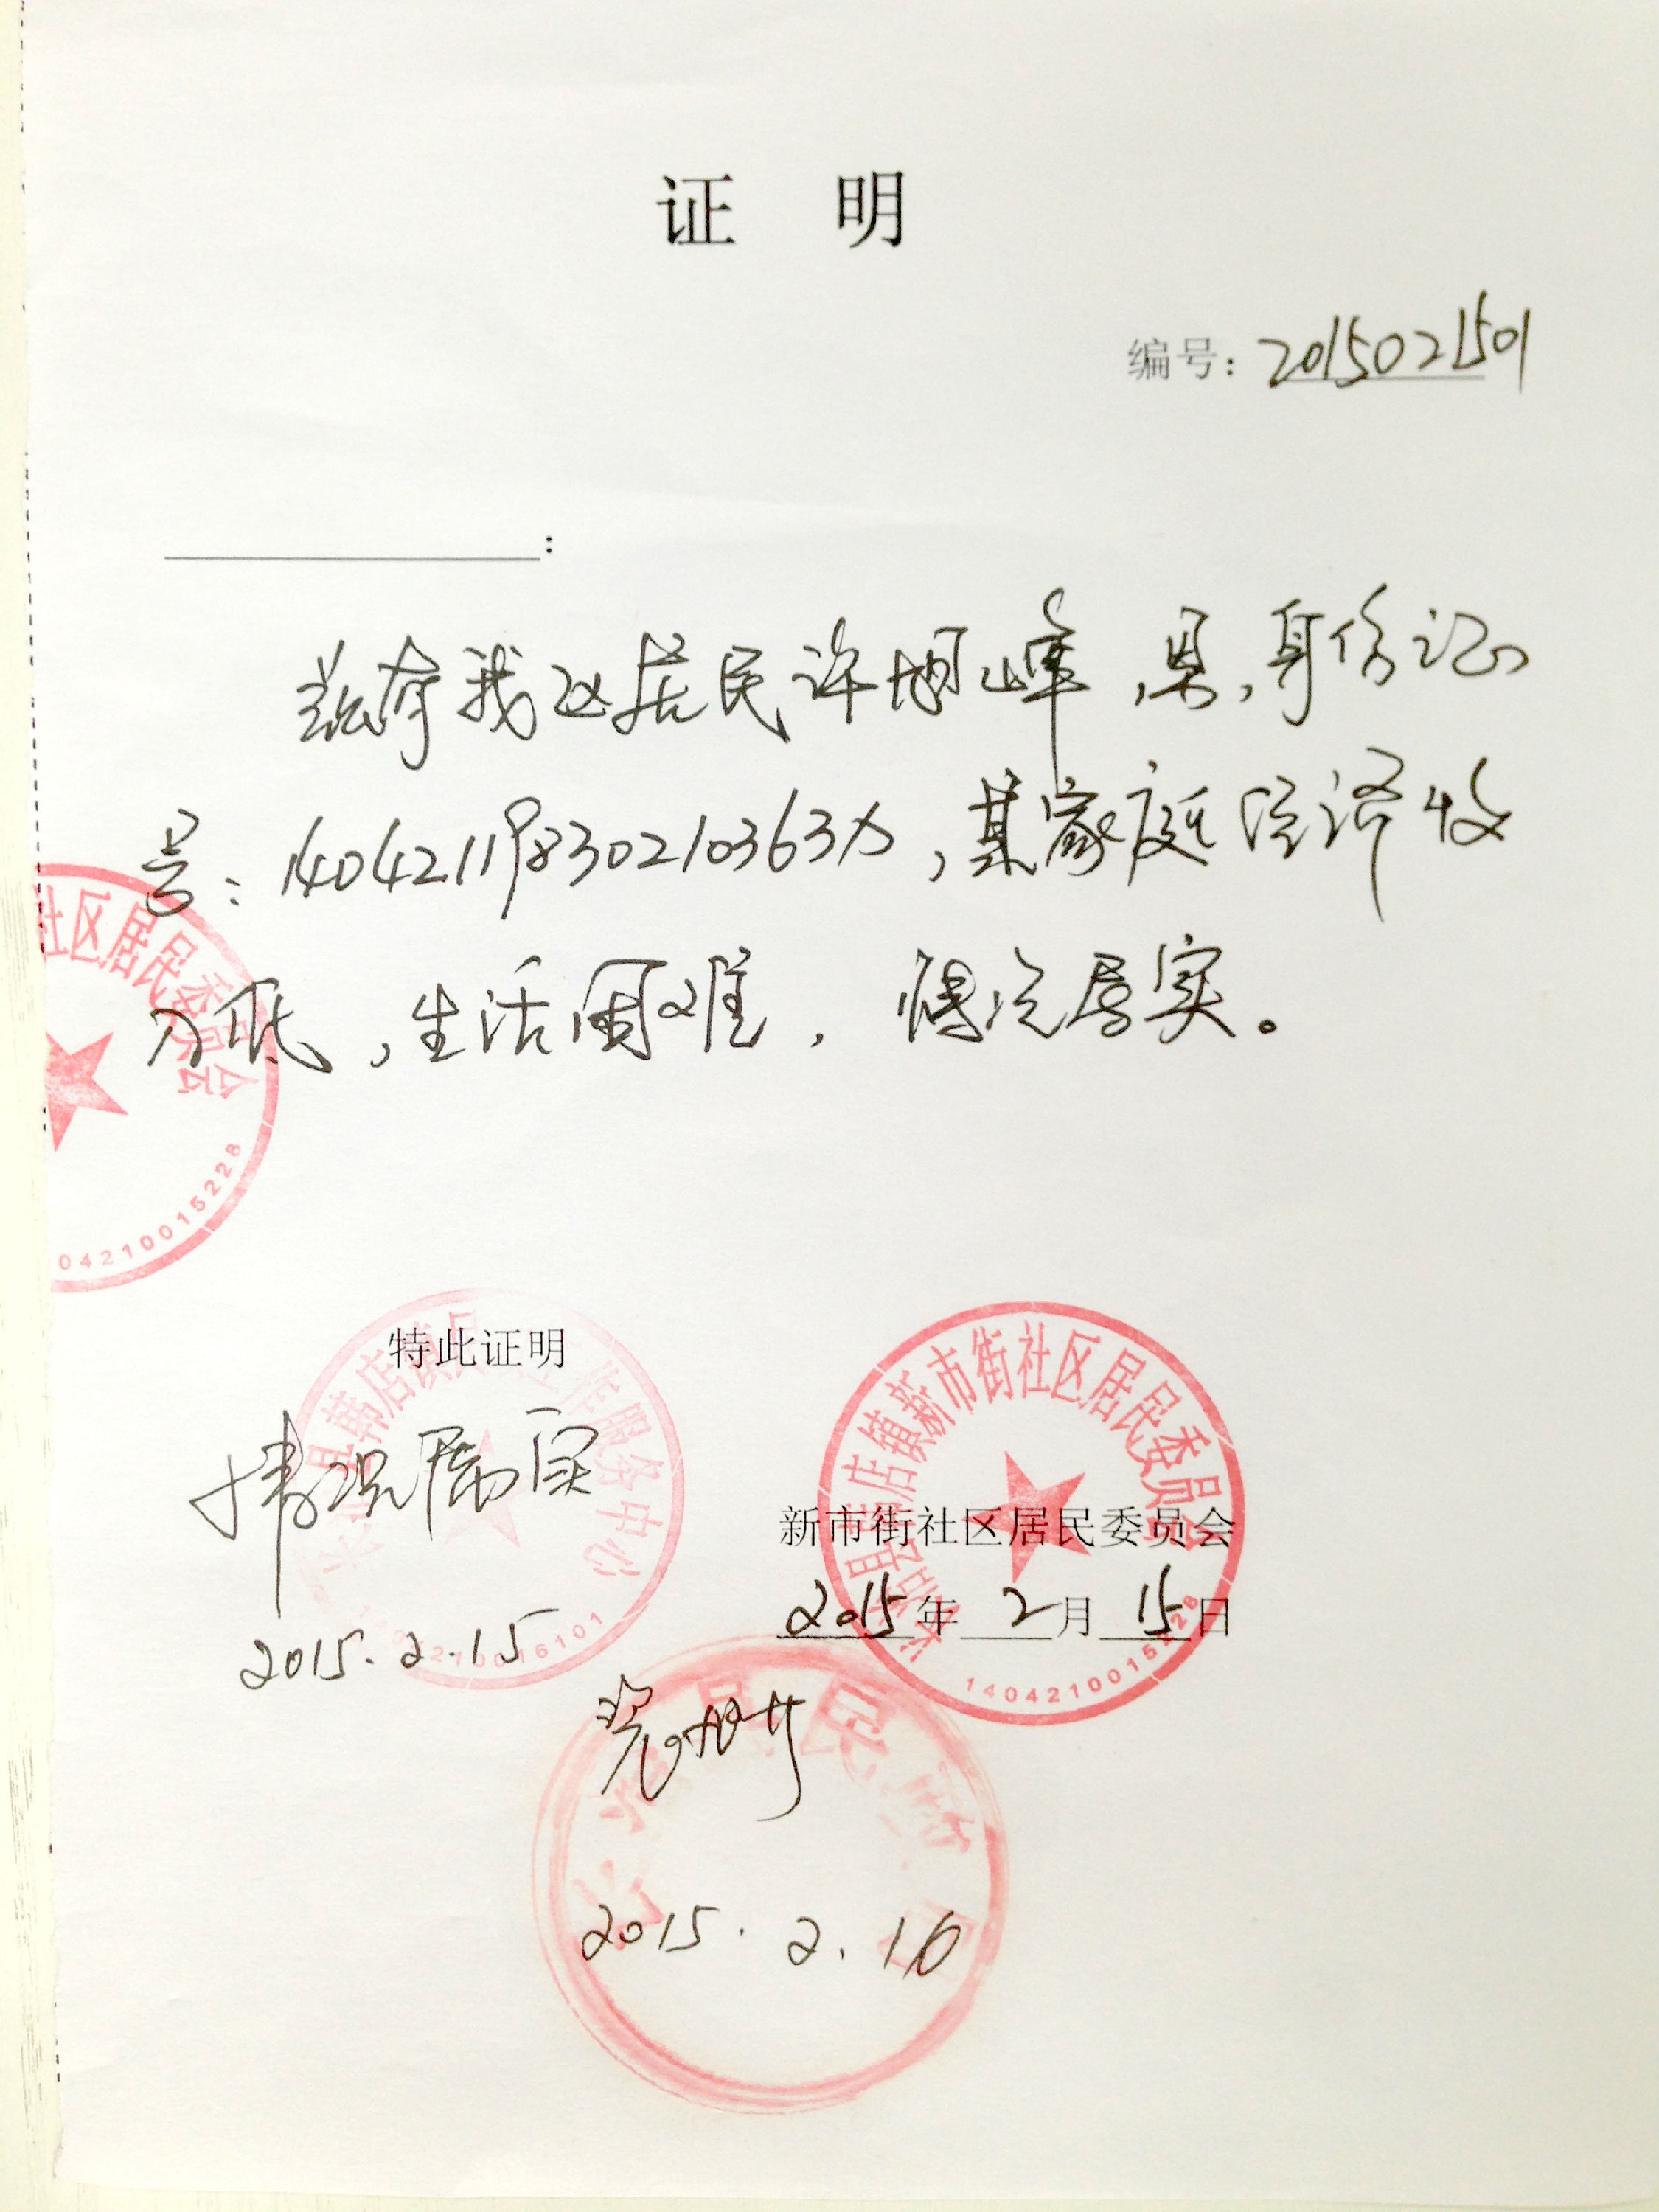 证 明
编号：2015021501
：
兹有我社区居民许旭峰，男，身份证
号：14042119830210363X，其家庭经济收
入低，生活困难，情况属实。
社区居民委员会
04210015228
特此证明
韩店镇
服务中心
情况属实
2015.2.15
210016101
店镇新市街社区居民委员会
新市街社区居民委员会
2015年 2月 15日
1404210015228
2015.2.16